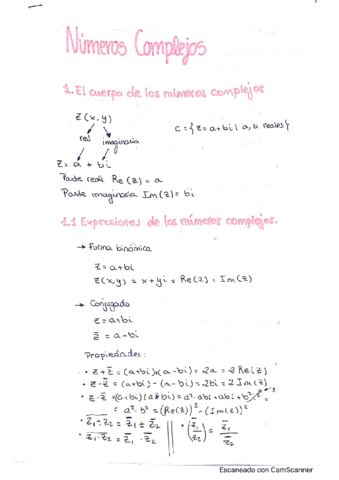 Números Complejos
1. El cuerpo de los números complejos
Z(x,y)
C = {z=a+bi | a, b reales}
real imaginaria
z = a + bi
Parte real Re(z) = a
Parte imaginaria Im(z) = bi
1.1 Expresiones de los números complejos.
→ Forma binómica
z = a+bi
z(x,y) = x + yi = Re(z) + Im(z)
→ Conjugado
z = a+bi
z̄ = a-bi
Propiedades:
• z + z̄ = (a+bi)+(a-bi) = 2a = 2 Re(z)
• z - z̄ = (a+bi) - (a-bi) = 2bi = 2 Im(z)
• z · z̄ = (a+bi)(a-bi) = a² - abi + abi + b²
= a² - b² = (Re(z))² - (Im(z))²
• z₁ ± z₂ = z̄₁ ± z̄₂ || • (z₁/z₂) = z̄₁/z̄₂
• z₁ · z₂ = z̄₁ · z̄₂
Escaneado con CamScanner